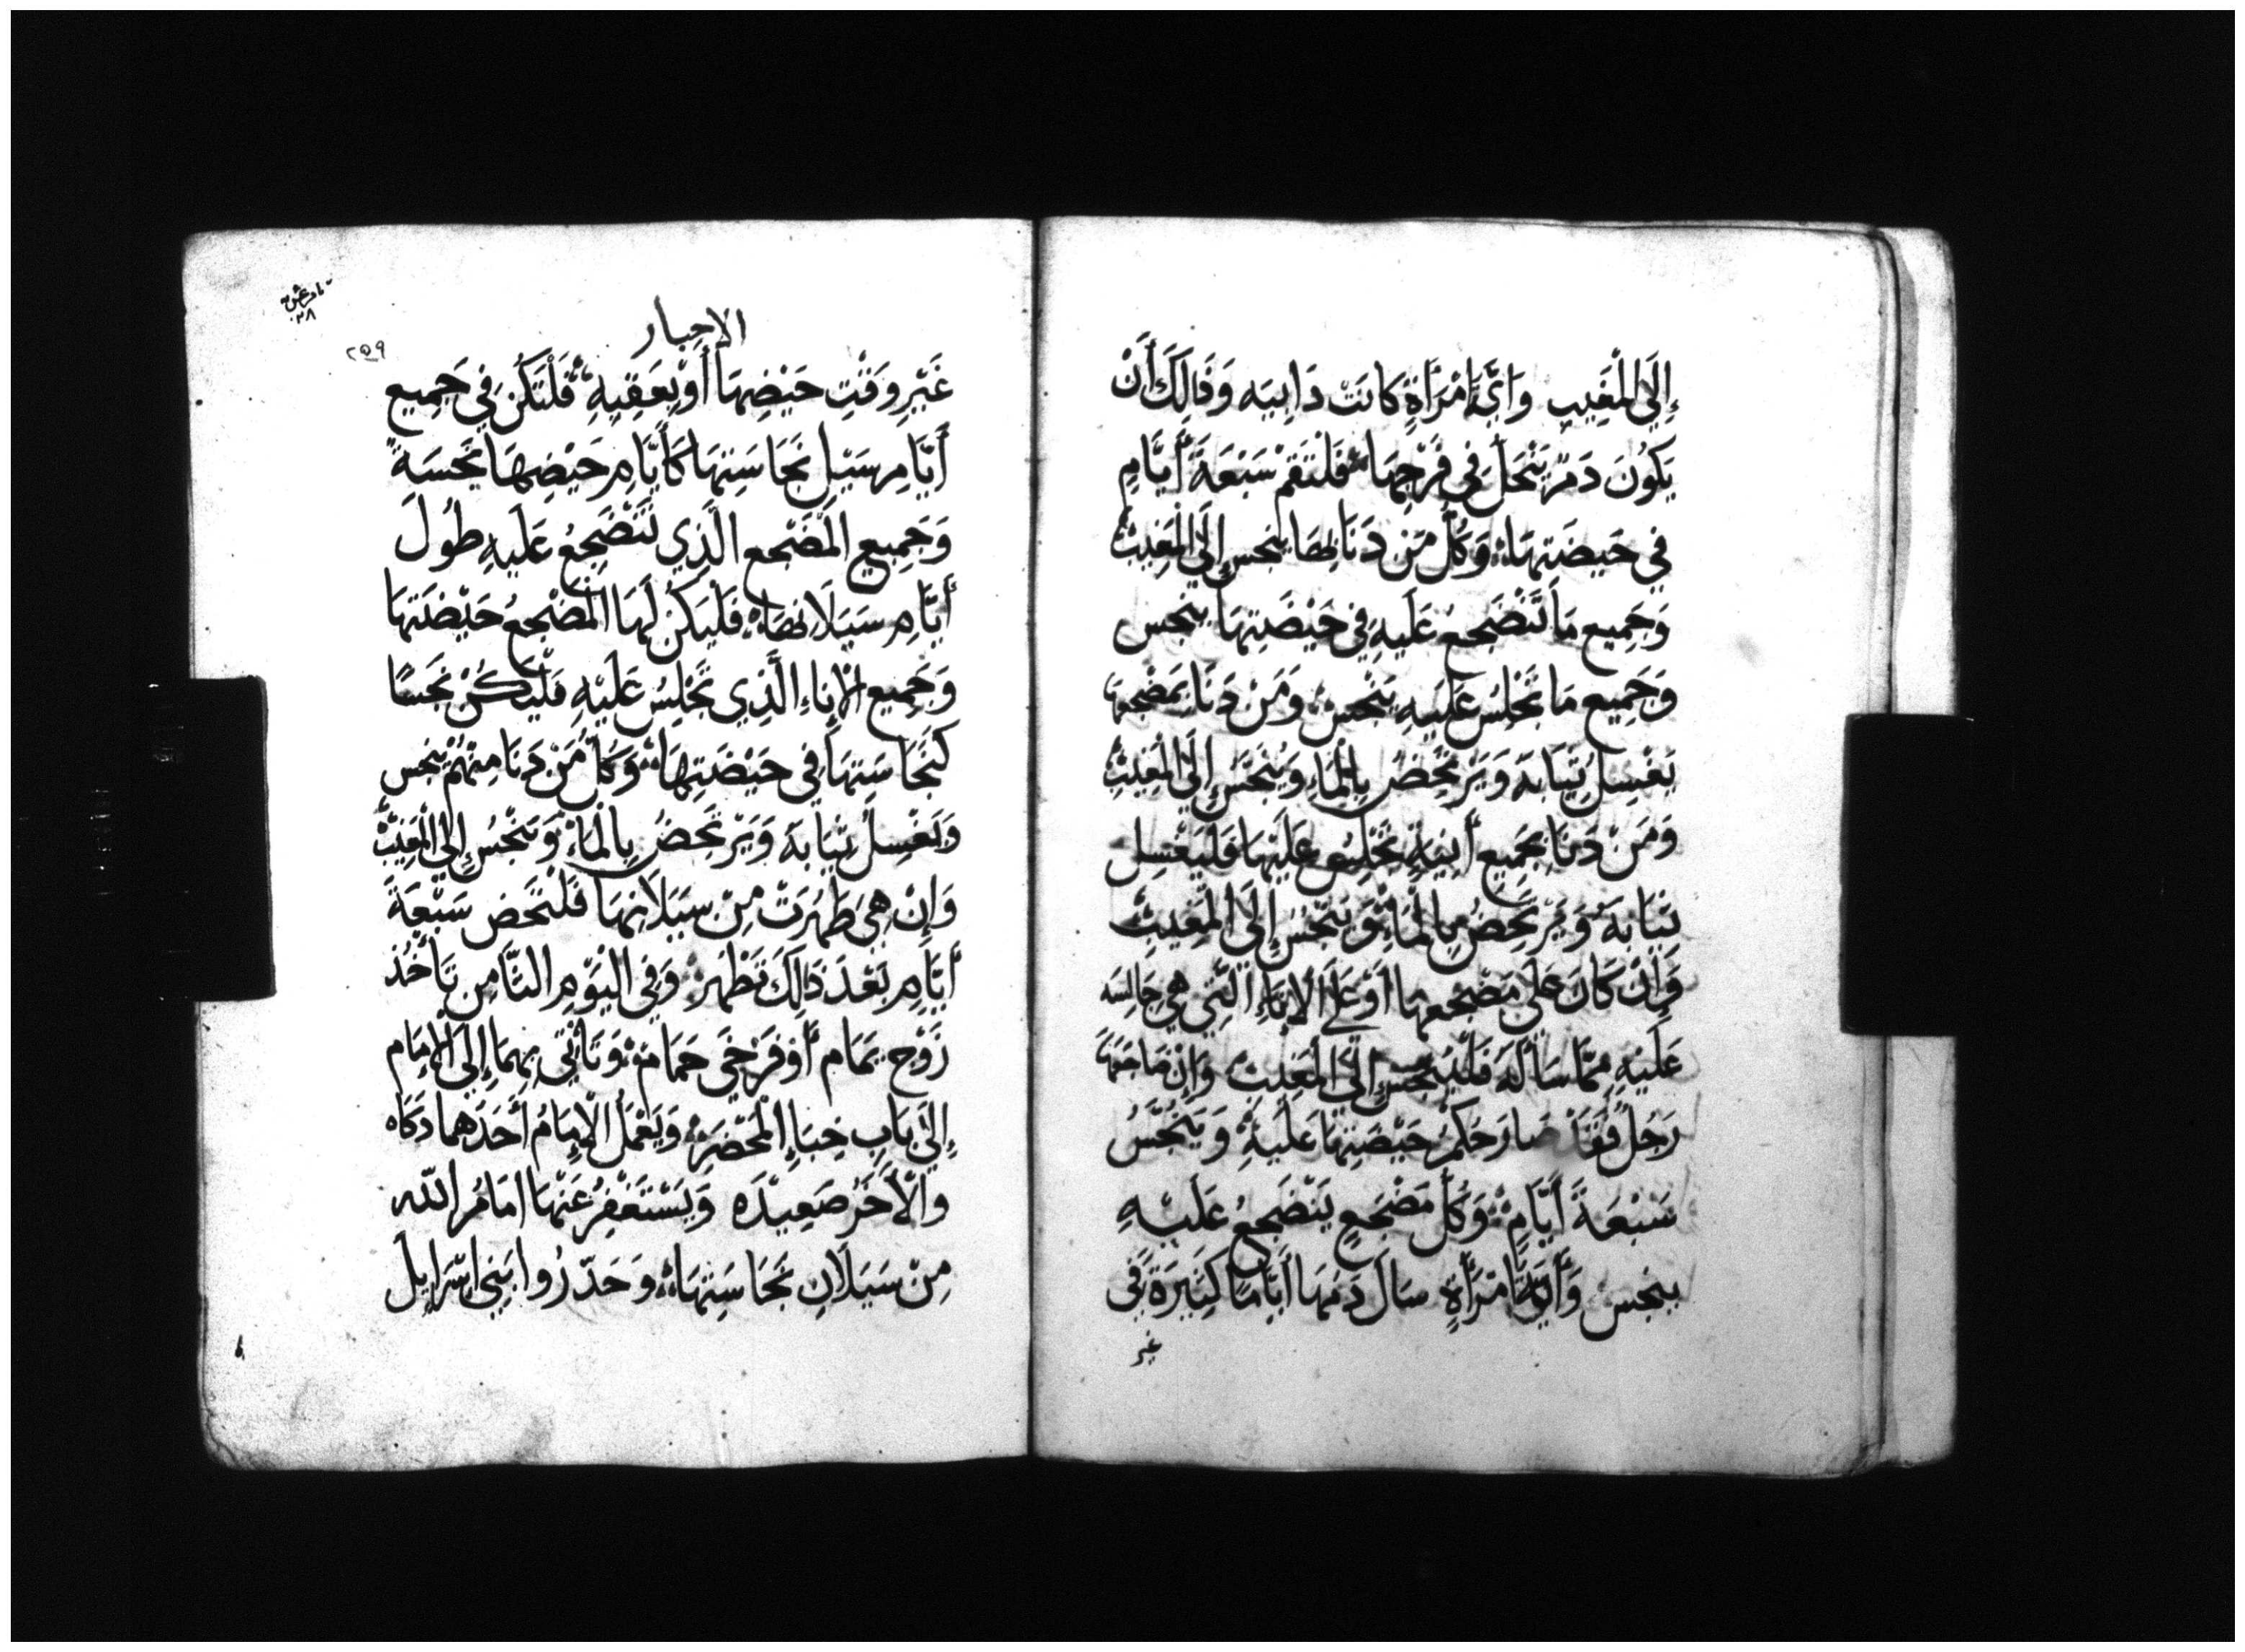 إِلَى الْمَغِيبِ وَايَّ امْرَأَةٍ كَانَتْ دَابِيَه وَذَالِكَ أَنْ
يَكُونَ دَمٌ يَنْحَلَّ فِي فَرْجِهَا فَلْتَقُمْ سَبْعَةَ أَيَّامٍ
فِي حَيضَتِهَا وَكُلُّ مَنْ دَنَا بِهَا يَنجس إِلَى الْمَغِيبِ
وَجَمِيع مَا تَنْضَجِعُ عَلَيهِ فِي حَيْضَتِهَا ينجس
وَجَمِيع مَا تَجْلِسُ عَلَيهِ يَنْجس وَمَنْ دَنَا بِمَضْجعِهَا
يَغْسِلُ ثِيَابَهُ وَيَرْتَحِضُ بِالْمَاءِ وَيَنْجَسُ إِلَى الْمَغِيبِ
وَمَنْ دَنَا بِجَمِيعِ أَنِيَةٍ تَجْلِسُ عَلَيْهَا فَليَغْسِل
ثِيَابَهُ وَيَرْتَحِضُ بِالْمَاءِ وَيَنْجَسُ إِلَى الْمَغِيبِ
وَإِنْ كَانَ عَلَى مَضْجعِهَا أَوْ عَلَى الإِنَاءِ الَّتِي هِي جَالِسَه
عَلَيْهِ مِمَّا سَأَلَهُ فَلْيَنجس إِلَى الْمَغِيبِ وَإِنْ ضَاجَعَهَا
رَجُلٌ فَقَدْ صَارَ حُكْمُ حَيْضَتِهَا عَلَيْهِ وَيَنْجَسُ
سَبْعَةَ أَيَّامٍ وَكُلُّ مَضْجَعٍ يَنْضَجِعُ عَلَيْهِ
ينجس وَأَيَّةُ امْرَأَةٍ سَالَ دَمُهَا أَيَّامًا كَثِيرَةً فِي
غير
الاحبار
٢٥٩
غَيْرِ وَقْتِ حَيْضِهَا أَوْ بِعَقِبِهِ فَلْتَكُنْ فِي جَمِيعِ
أَيَّامِ سَيْلِ نَجَاسَتِهَا كَأَيَّامِ حَيْضِهَا نَجسَةً
وَجَمِيعِ الْمَضْجع الَّذِي تَنْضَجِعُ عَلَيهِ طُولَ
أَيَّامِ سَيَلَانِهَا فَلْيَكُنْ لَهَا الْمَضْجعُ حَيْضَتِهَا
وَجَمِيع الإِنَاءِ الَّذِي تَجْلِسُ عَلَيْهِ فَلْيَكُنْ نَجَسًا
كَنَجَاسَتِهَا فِي حَيْضَتِهَا وَكُلُّ مَنْ دَنَا مِنْهُمْ يَنجس
وَيَغْسِلُ ثِيَابَهُ وَيَرْتَحِضُ بِالْمَاءِ وَيَنْجُسُ إِلَى الْمَغِيبِ
وَإِنْ هِيَ طَهُرَتْ مِنْ سَيَلَانِهَا فَلْتَحْصِ سَبْعَةَ
أَيَّامٍ بَعْدَ ذَالِكَ تَطْهَر وَفِي الْيَوْمِ الثَّامِنِ تَأْخُذ
زَوْجَ يَمَام أَوْ فَرْخَيْ حَمَامٍ وَتَأْتِي بِهِمَا إِلَى الإِمَام
إِلَى بَابِ خِبَاءِ الْمَحْضَرِ وَيَعْمَل الإِمَامُ أَحَدَهُمَا ذَكَاه
وَالْأَخَرُ صَعِيدَه وَيَسْتَغْفِرُ عَنْهَا امَامُ اللّه
مِنْ سَيَلَانِ نَجَاسَتِهَا وَحَذّرُوا بَنِي اسْرَايِلَ